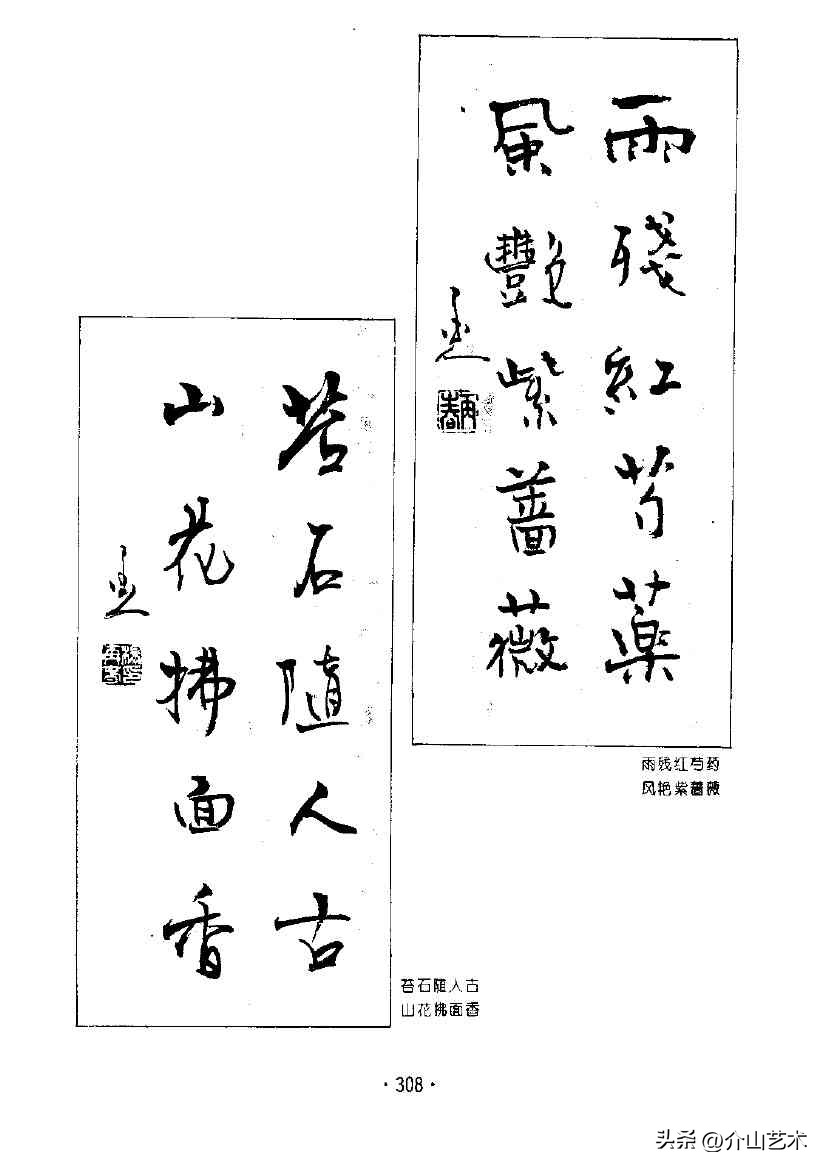 雨殘紅芍藥
風艷紫薔薇
雨残红芍药
风艳紫蔷薇
苔石隨人古
山花拂面香
苔石随人古
山花拂面香
·308·
头条 @介山艺术